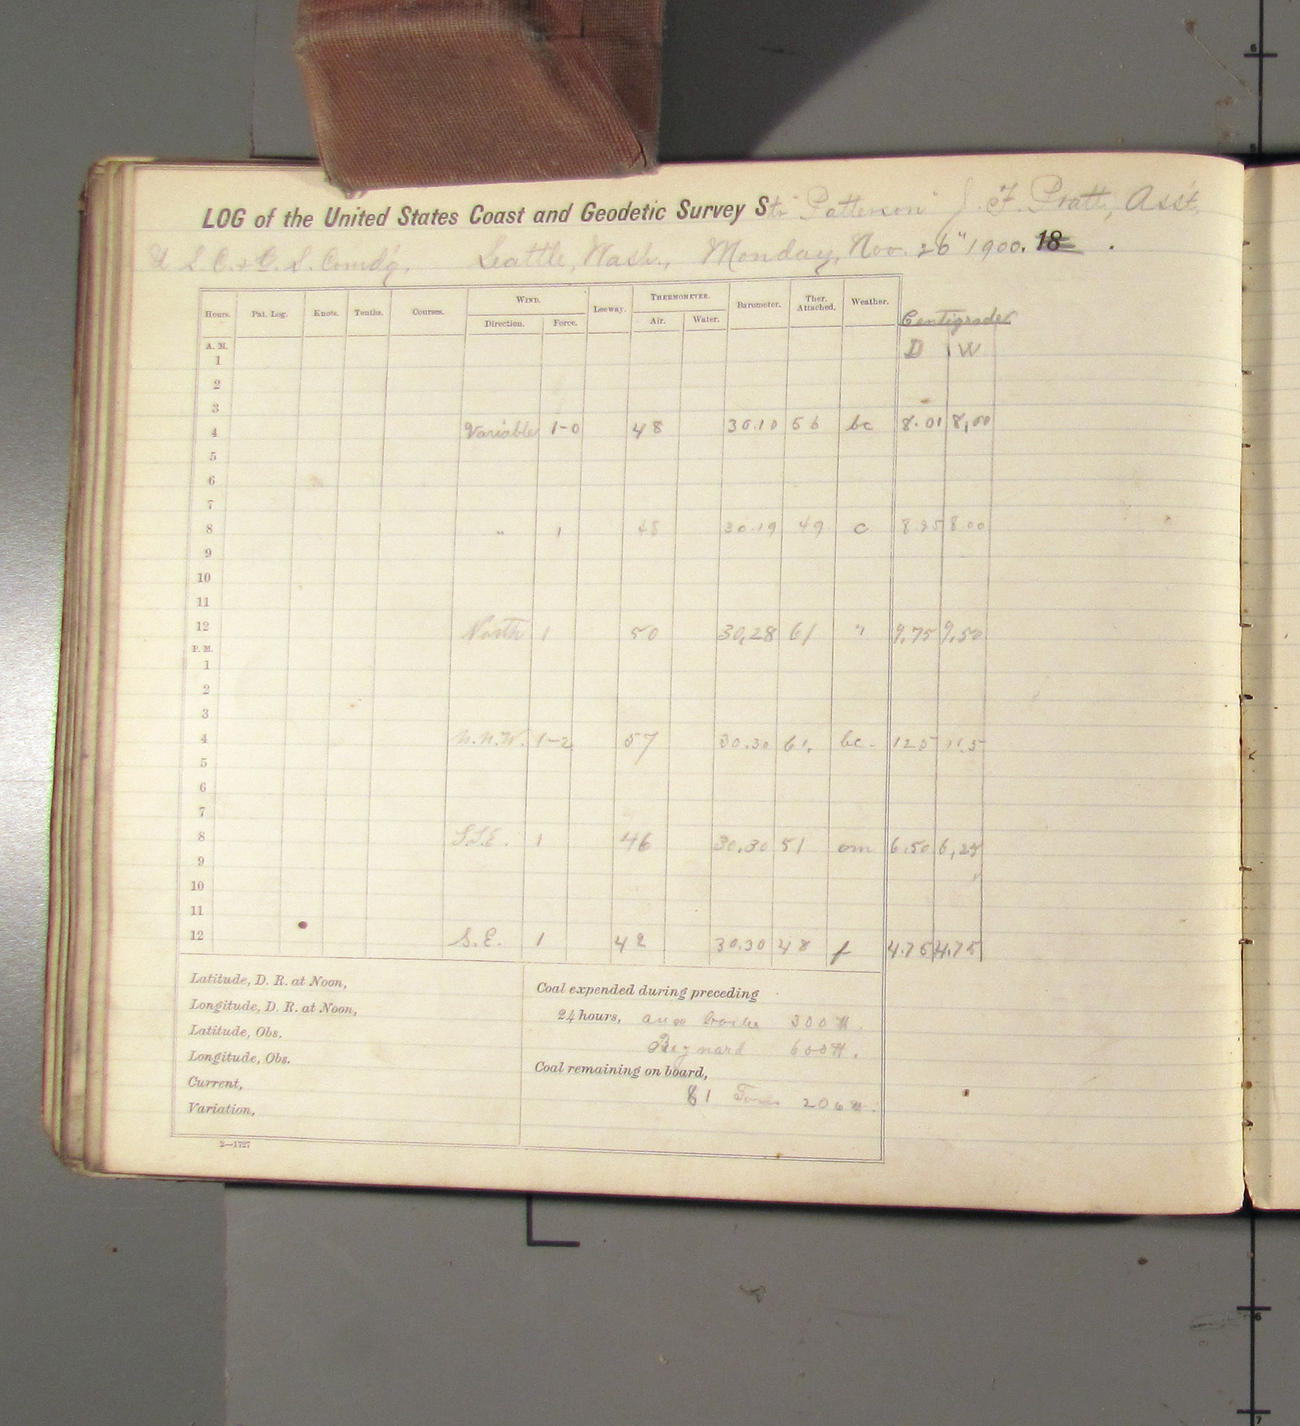 LOG of the United States Coast and Geodetic Survey Str "Patterson" J. F. Pratt, Ass't.
U. S. C. & G. S. Comd'g. Seattle, Wash., Monday, Nov. 26" 1900. 18 .
WIND. THERMOMETER.
Hours. Pat. Log. Knots. Tenths. Courses. Direction. Force. Leeway. Air. Water. Barometer. Ther. Attached. Weather. Centigrade
A. M. D W
1
2
3
4 Variable 1-0 48 30.10 56 bc 8.01 8,00
5
6
7
8 " 1 48 30.19 49 c 8.25 8.00
9
10
11
12 North 1 50 30,28 61 " 9.75 9,50
P. M.
1
2
3
4 N.N.W. 1-2 57 30.30 61. bc. 12.5 11.5
5
6
7
8 S.S.E. 1 46 30.30 51 om 6.50 6,25
9
10
11
12 S.E. 1 42 30.30 48 f 4.75 4.75
Latitude, D. R. at Noon,
Longitude, D. R. at Noon,
Latitude, Obs.
Longitude, Obs.
Current,
Variation,
Coal expended during preceding
24 hours, 300 #.
600 #.
Coal remaining on board,
81 Tons 206 #.
2—1727